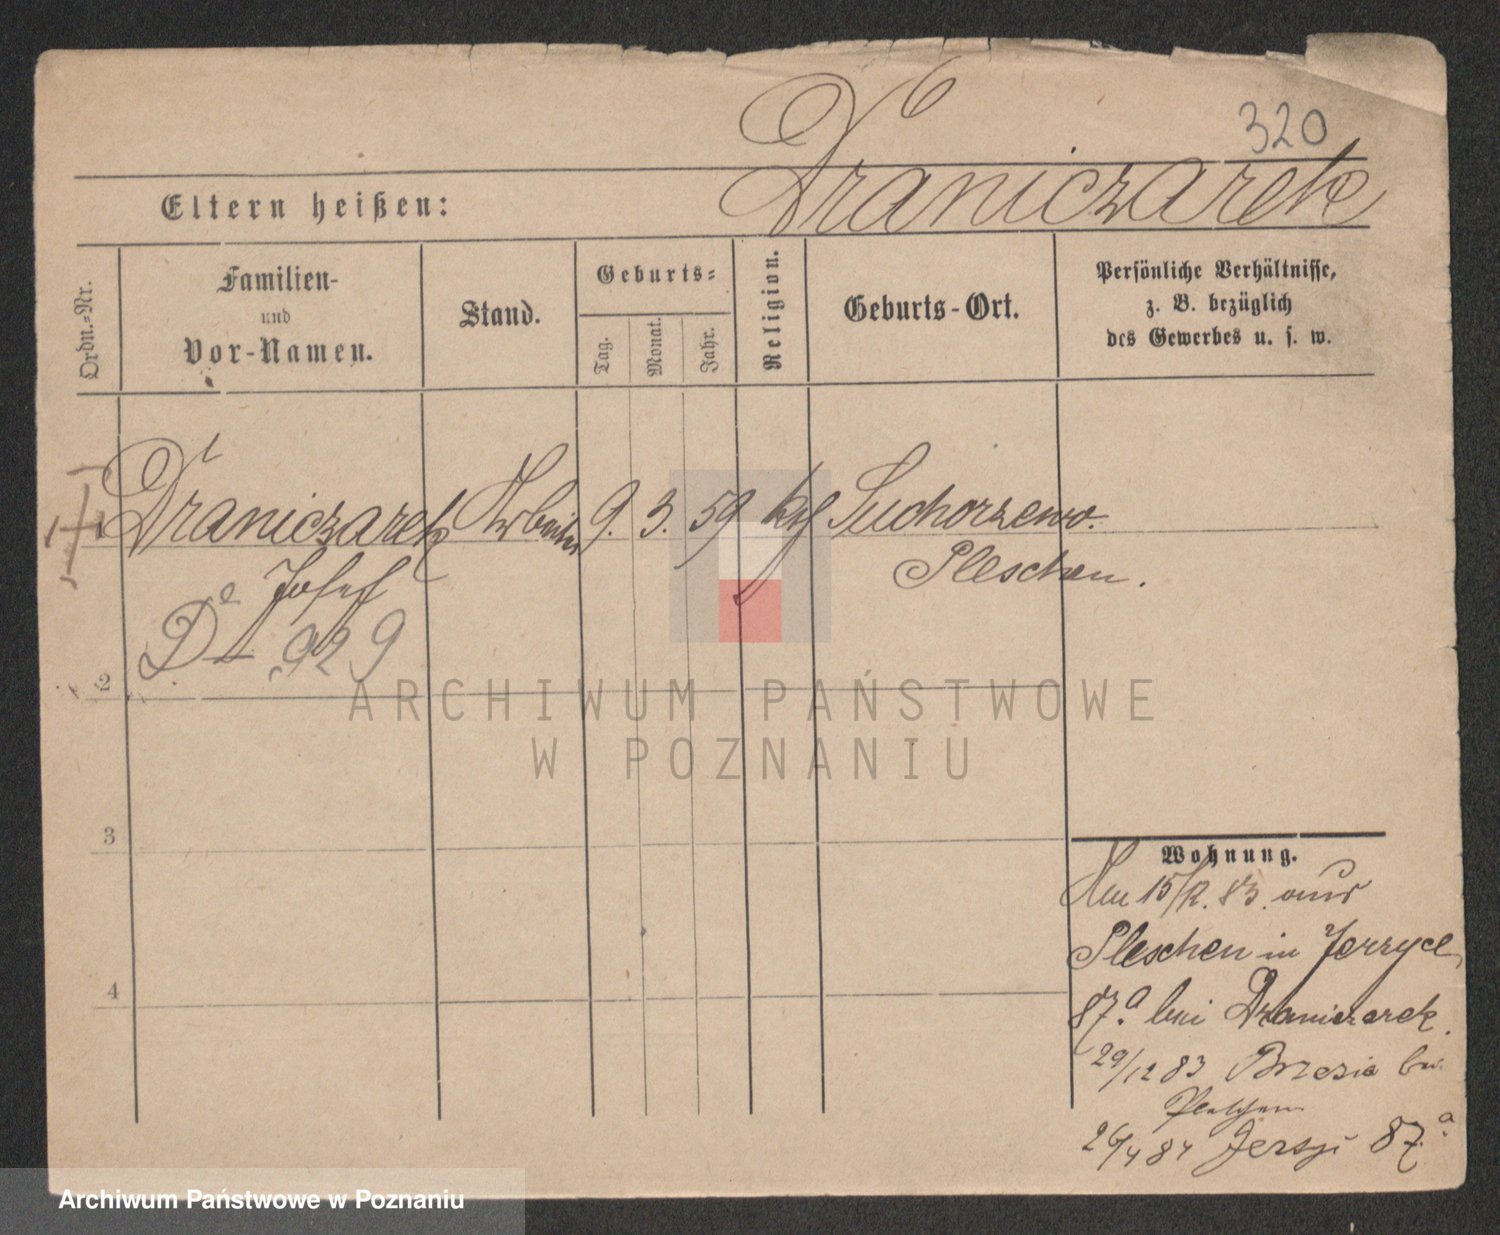 320
Draniczarek
Eltern heißen:
Ordn.=Nr.
Familien-
und
Vor-Namen.
Stand.
Geburts=
Tag.
Monat.
Jahr.
Religion.
Geburts-Ort.
Persönliche Verhältnisse,
z. B. bezüglich
des Gewerbes u. s. w.
Draniczarek Arbeiter 9. 3. 59 kth Suchorzewo.
Josef Pleschen.
De 929
2
3
4
Wohnung.
Am 15/12. 83. aus
Pleschen in Jerzyce
87.a bei Draniczarek.
29/12 83 Brzezie bei
Pleschen
26/4 84 Jersyi 87.a
ARCHIWUM PAŃSTWOWE
W POZNANIU
Archiwum Państwowe w Poznaniu